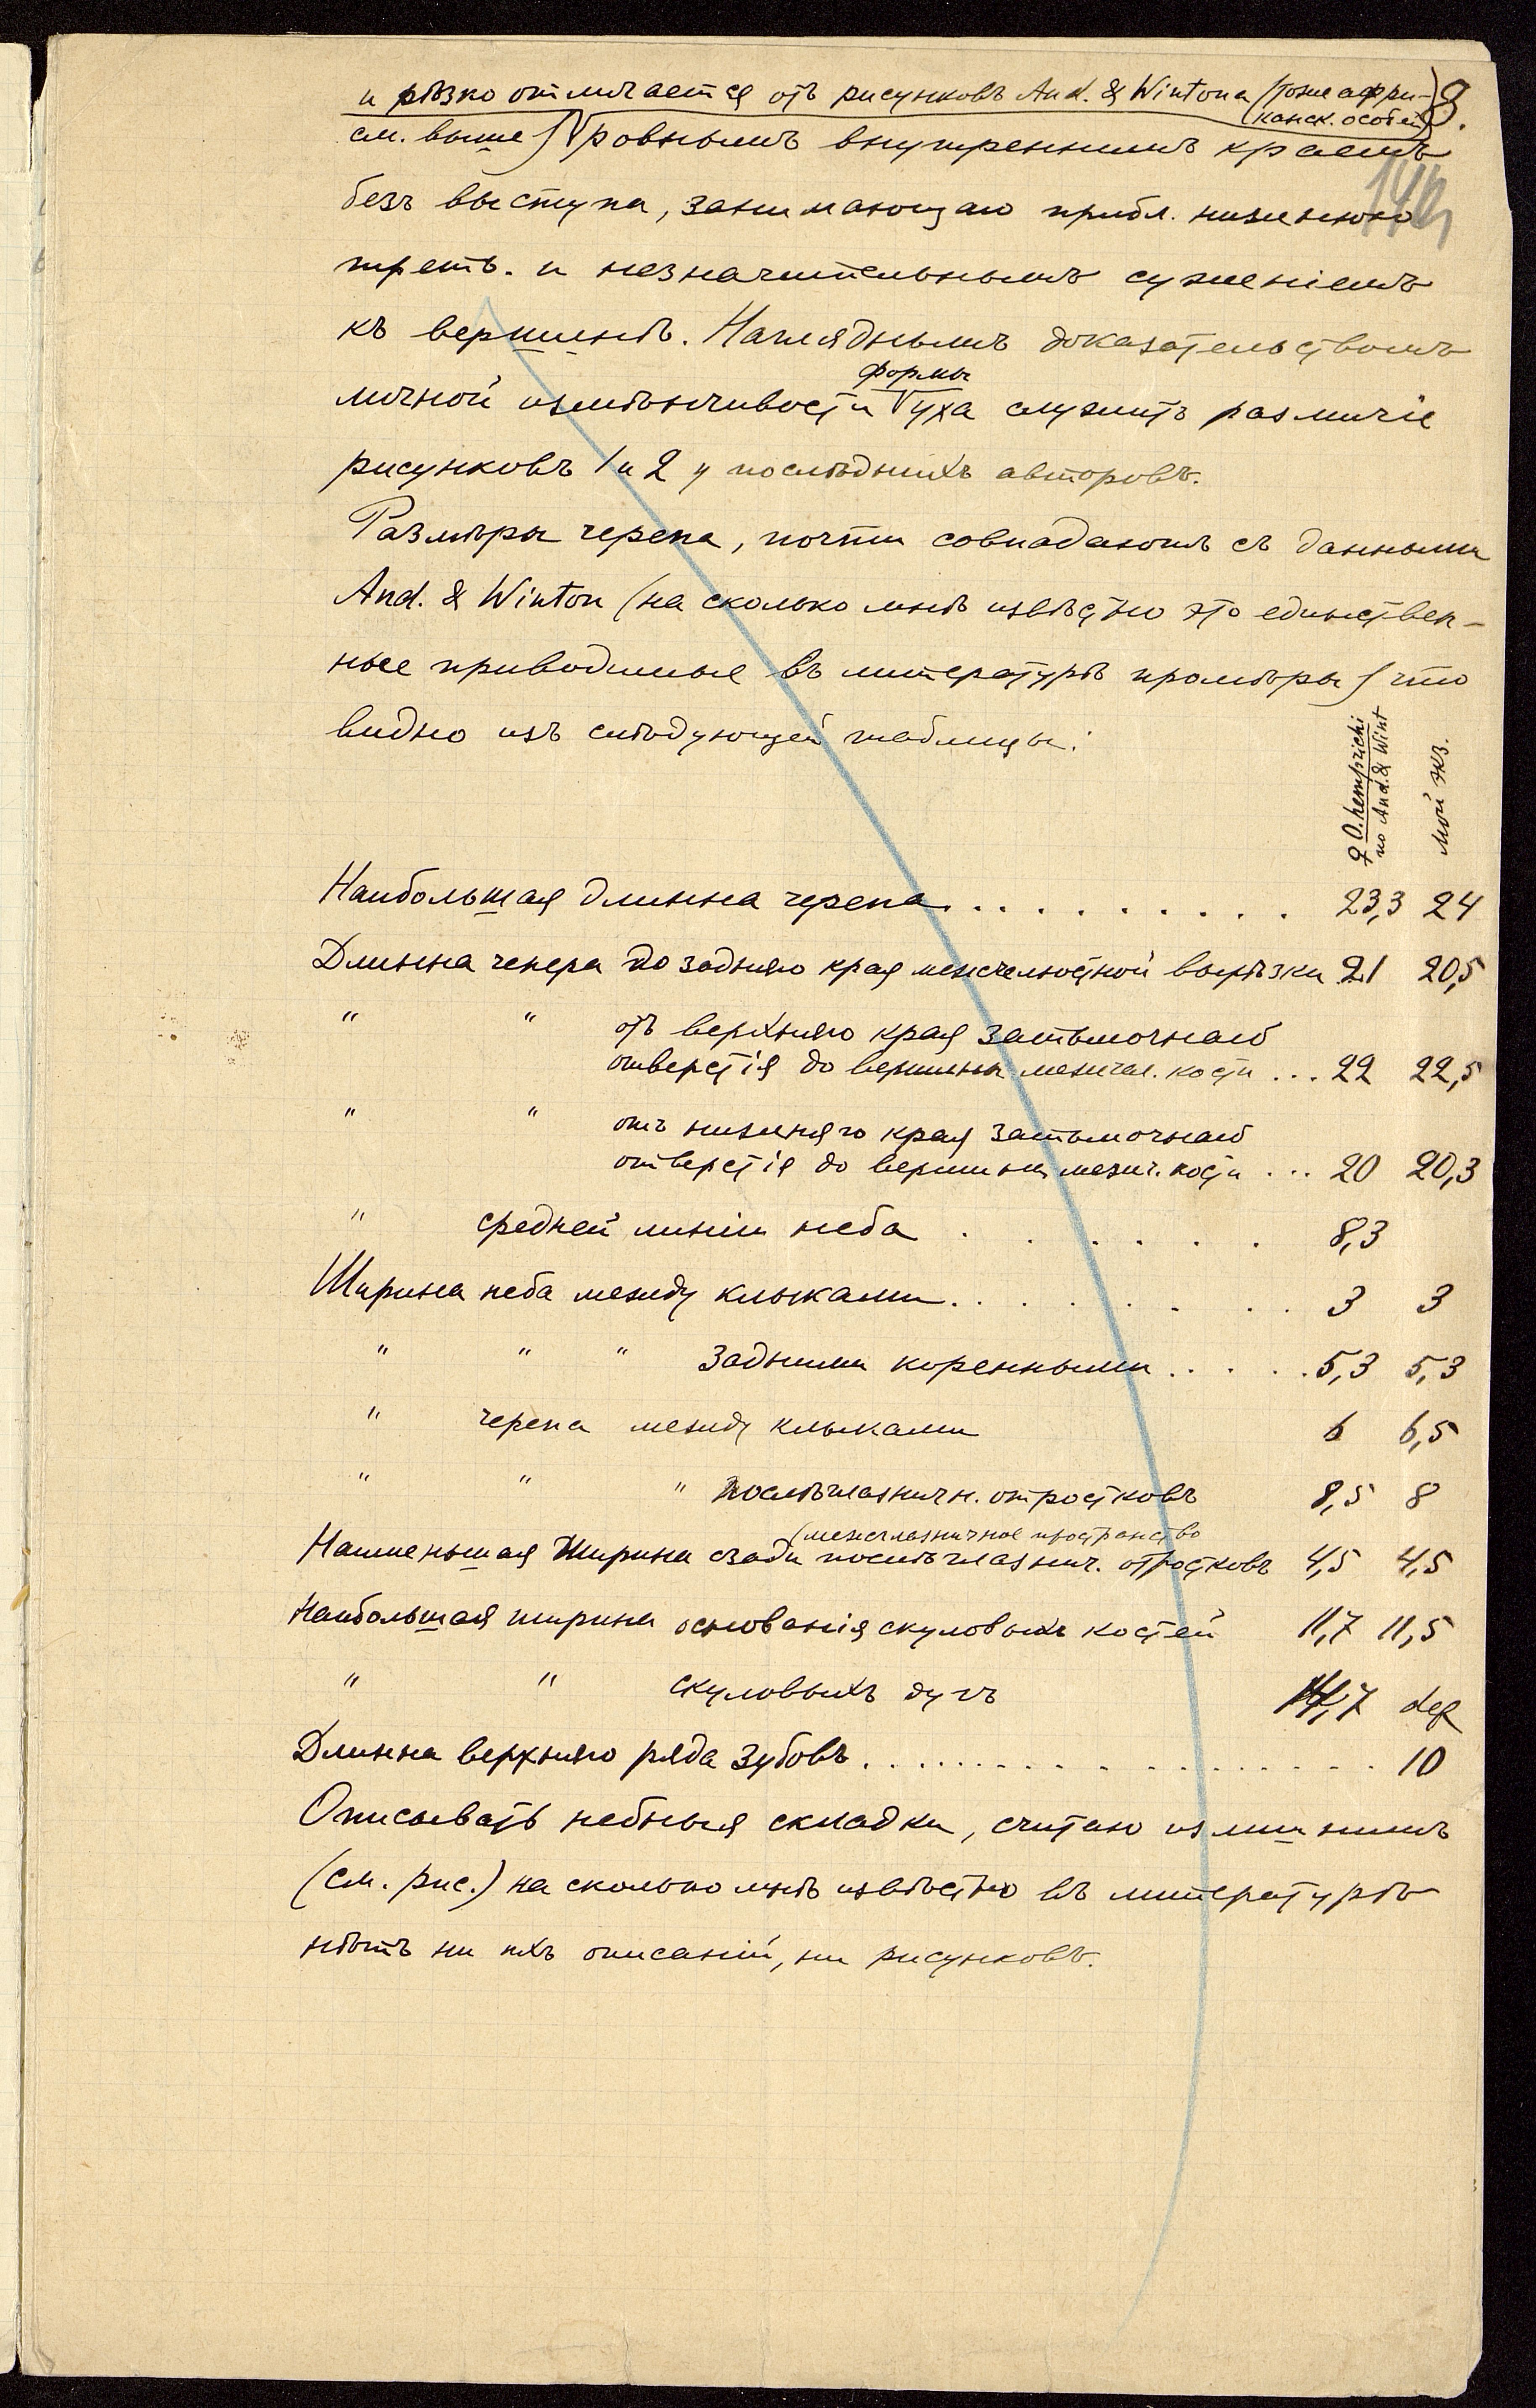 и рѣзко отличается отъ рисунковъ And. & Wintona (тоже афри-) 9.
канск. особей
см. выше) ровнымъ внутреннимъ краемъ
безъ выступа, занимающаго прибл. нижнюю
треть. и незначительнымъ суженіемъ
къ вершинѣ. Нагляднымъ доказательствомъ
формы
личной измѣнчивости уха служитъ различіе
рисунковъ 1 и 2 у послѣднихъ авторовъ.
Размѣры черепа, почти совпадаютъ съ данными
And. & Winton (на сколько мнѣ извѣстно это единствен-
ные приводимые въ литературѣ промѣры) что
видно изъ слѣдующей таблицы:
♀ O. hemprichi
по And. & Wint
мой экз.
Наибольшая длинна черепа. . . . . . . . . . 23,3 24
Длинна чепера до задняго края межчелюстной вырѣзки 21 20,5
" " отъ верхняго края затылочнаго
отверстія до вершины межчел. кости ... 22 22,5
" " отъ нижняго края затылочнаго
отверстія до вершины межч. кости ... 20 20,3
" средней линіи неба . . . . . . 8,3
Ширина неба между клыками. . . . . . . . 3 3
" " " задними коренными . . . . . 5,3 5,3
" черепа между клыками 6 6,5
" " " послѣглазничн. отростковъ 8,5 8
(межглазничное пространство
Наименьшая ширина сзади послѣглазнич. отростковъ 4,5 4,5
Наибольшая ширина основанія скуловыхъ костей 11,7 11,5
" " скуловыхъ дугъ 14,7 def
Длинна верхняго ряда зубовъ . . . . . . . . . . . . . . . . 10
Описывать небныя складки, считаю излишнимъ
(см. рис.) на сколько мнѣ извѣстно въ литературѣ
нѣтъ ни ихъ описаній, ни рисунковъ.